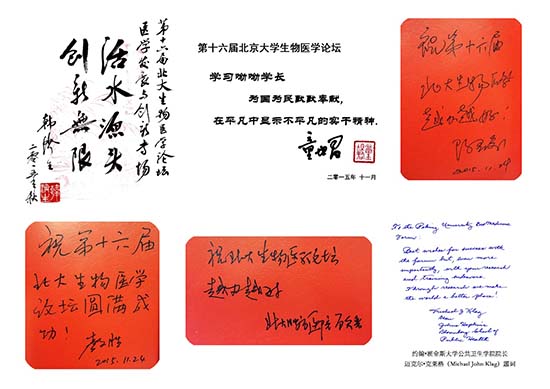 第十六届北大生物医学论坛
医学发展与创新市场
活水源头
创新无限
韩济生
二零一五年秋
第十六届北京大学生物医学论坛
学习呦呦学长
为国为民默默奉献,
在平凡中显示不平凡的实干精神.
童坦君
二零一五年 十一月
祝第十六届
北大生物医学
越办越好!
2015.11.24
祝第十六届
北大生物医学
论坛圆满成
功!
2015.11.24
祝北大生物医学论坛
越办越好
To the Peking University Biomedicine
Forum
Best wishes for success with
the forum but, even more
importantly, with your research
and training endeavors.
Through research we make
the world a better place!
Michael J Klag
Dean
Johns Hopkins
Bloomberg School of
Public Health
约翰•霍金斯大学公共卫生学院院长
迈克尔•克莱格（Michael John Klag）题词